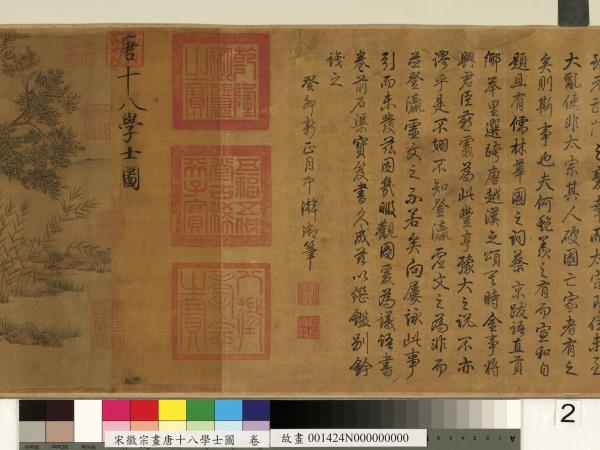 大亂使非太宗其人破國亡家者有之
矣則斯事也夫何艷羨之有而宣和自
題且有儒林華國之詞蔡京跋語直貢
鄉舉里選跨唐越漢之頌爾時金事將
興君臣為此豐亨豫大之說不亦
謬乎是不翅不知登瀛虛文之為非而
並登瀛虛文之不若矣向屢詠此事
引而未發茲因幾暇觀圖爰為議語書
卷前石渠寶笈書久成並以從鑑別鈐
識之
癸卯新正月中澣御筆
五福五代堂古稀天子寶
八徵耄念之寶
唐十八學士圖
宋徽宗畫唐十八學士圖 卷
故畫 001424N000000000
2